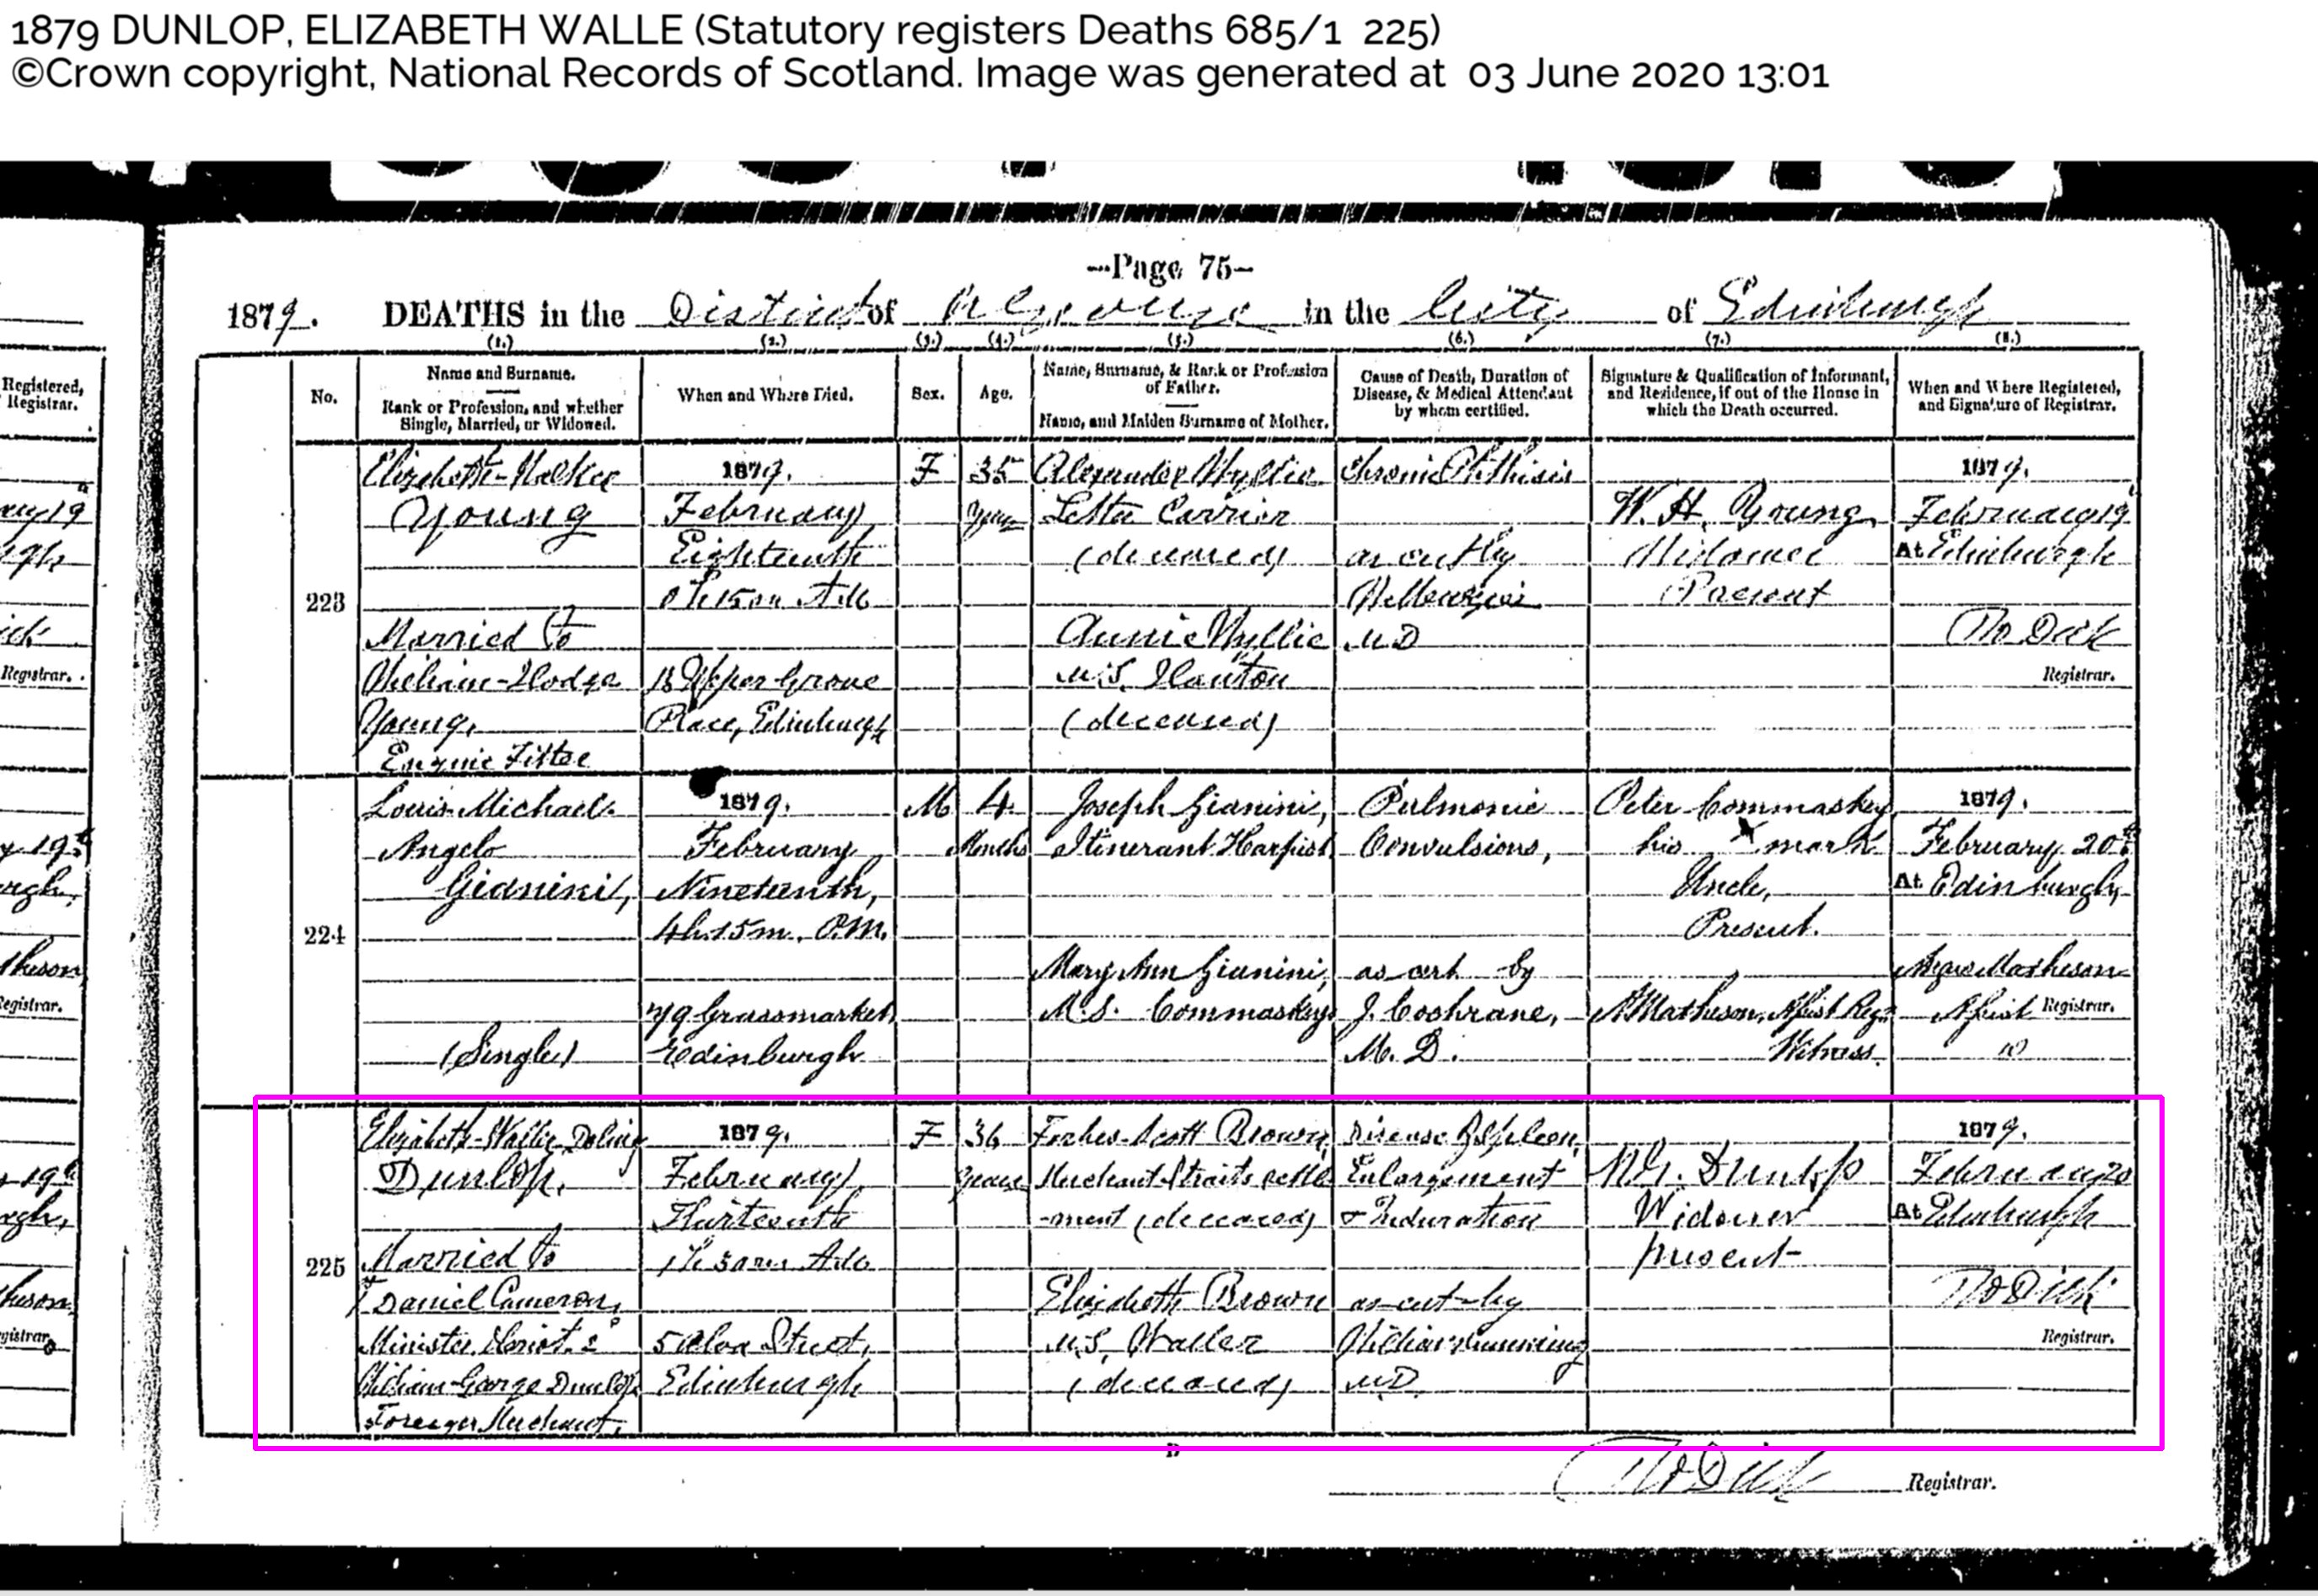 1879 DUNLOP, ELIZABETH WALLE (Statutory registers Deaths 685/1 225)
©Crown copyright, National Records of Scotland. Image was generated at 03 June 2020 13:01
-Page 75-
1879. DEATHS in the District of in the City of Edinburgh
(1.) (2.) (3.) (4.) (5.) (6.) (7.) (8.)
Registered,
Registrar.
No.
Name and Surname.
Rank or Profession, and whether
Single, Married, or Widowed.
When and Where Died.
Sex.
Age.
Name, Surname, & Rank or Profession
of Father.
Name, and Maiden Surname of Mother.
Cause of Death, Duration of
Disease, & Medical Attendant
by whom certified.
Signature & Qualification of Informant,
and Residence, if out of the House in
which the Death occurred.
When and Where Registered,
and Signature of Registrar.
223
Elizabeth Walker
Young
Married to
William Hodge
Young,
Engine Fitter
1879.
February
Eighteenth
15m A.M.
13 Upper Grove
Place, Edinburgh
F
35
years
Alexander Wyllie
Letter Carrier
(deceased)
Annie Wyllie
M.S.
(deceased)
Chronic Phthisis
as cert by
M.D
W. H. Young
Widower
Present
1879.
February 19
At Edinburgh
Tho Dick
Registrar.
224
Louis Michael
Angelo
Gianini,
(Single)
1879.
February
Nineteenth,
4h. 15m. P.M.
79 Grassmarket,
Edinburgh
M
4
Months
Joseph Gianini,
Itinerant Harpist
Mary Ann Gianini,
M.S. Commaskey
Pulmonic
Convulsions,
as cert by
J. Cochrane,
M. D.
Peter Commaskey
his x mark
Uncle,
Present.
A Matheson, Assist Regr.
Witness.
1879.
February 20th
At Edinburgh,
Angus Matheson
Assist Registrar.
225
Elizabeth Waller
Dunlop.
Married to
1 Daniel Cameron,
Minister, 2°
William George Dunlop
Foreign Merchant,
1879.
February
Thirteenth
1h 30m A.M.
5 Alva Street,
Edinburgh
F
36
years
Forbes Scott Brown,
Merchant Straits settle
-ment (deceased)
Elizabeth Brown
M.S. Waller
(deceased)
Disease of Spleen,
Enlargement
& Induration
as cert by
William
M.D.
W.G. Dunlop
Widower
present
1879.
February 20
At Edinburgh
Tho Dick
Registrar.
Tho Dick Registrar.